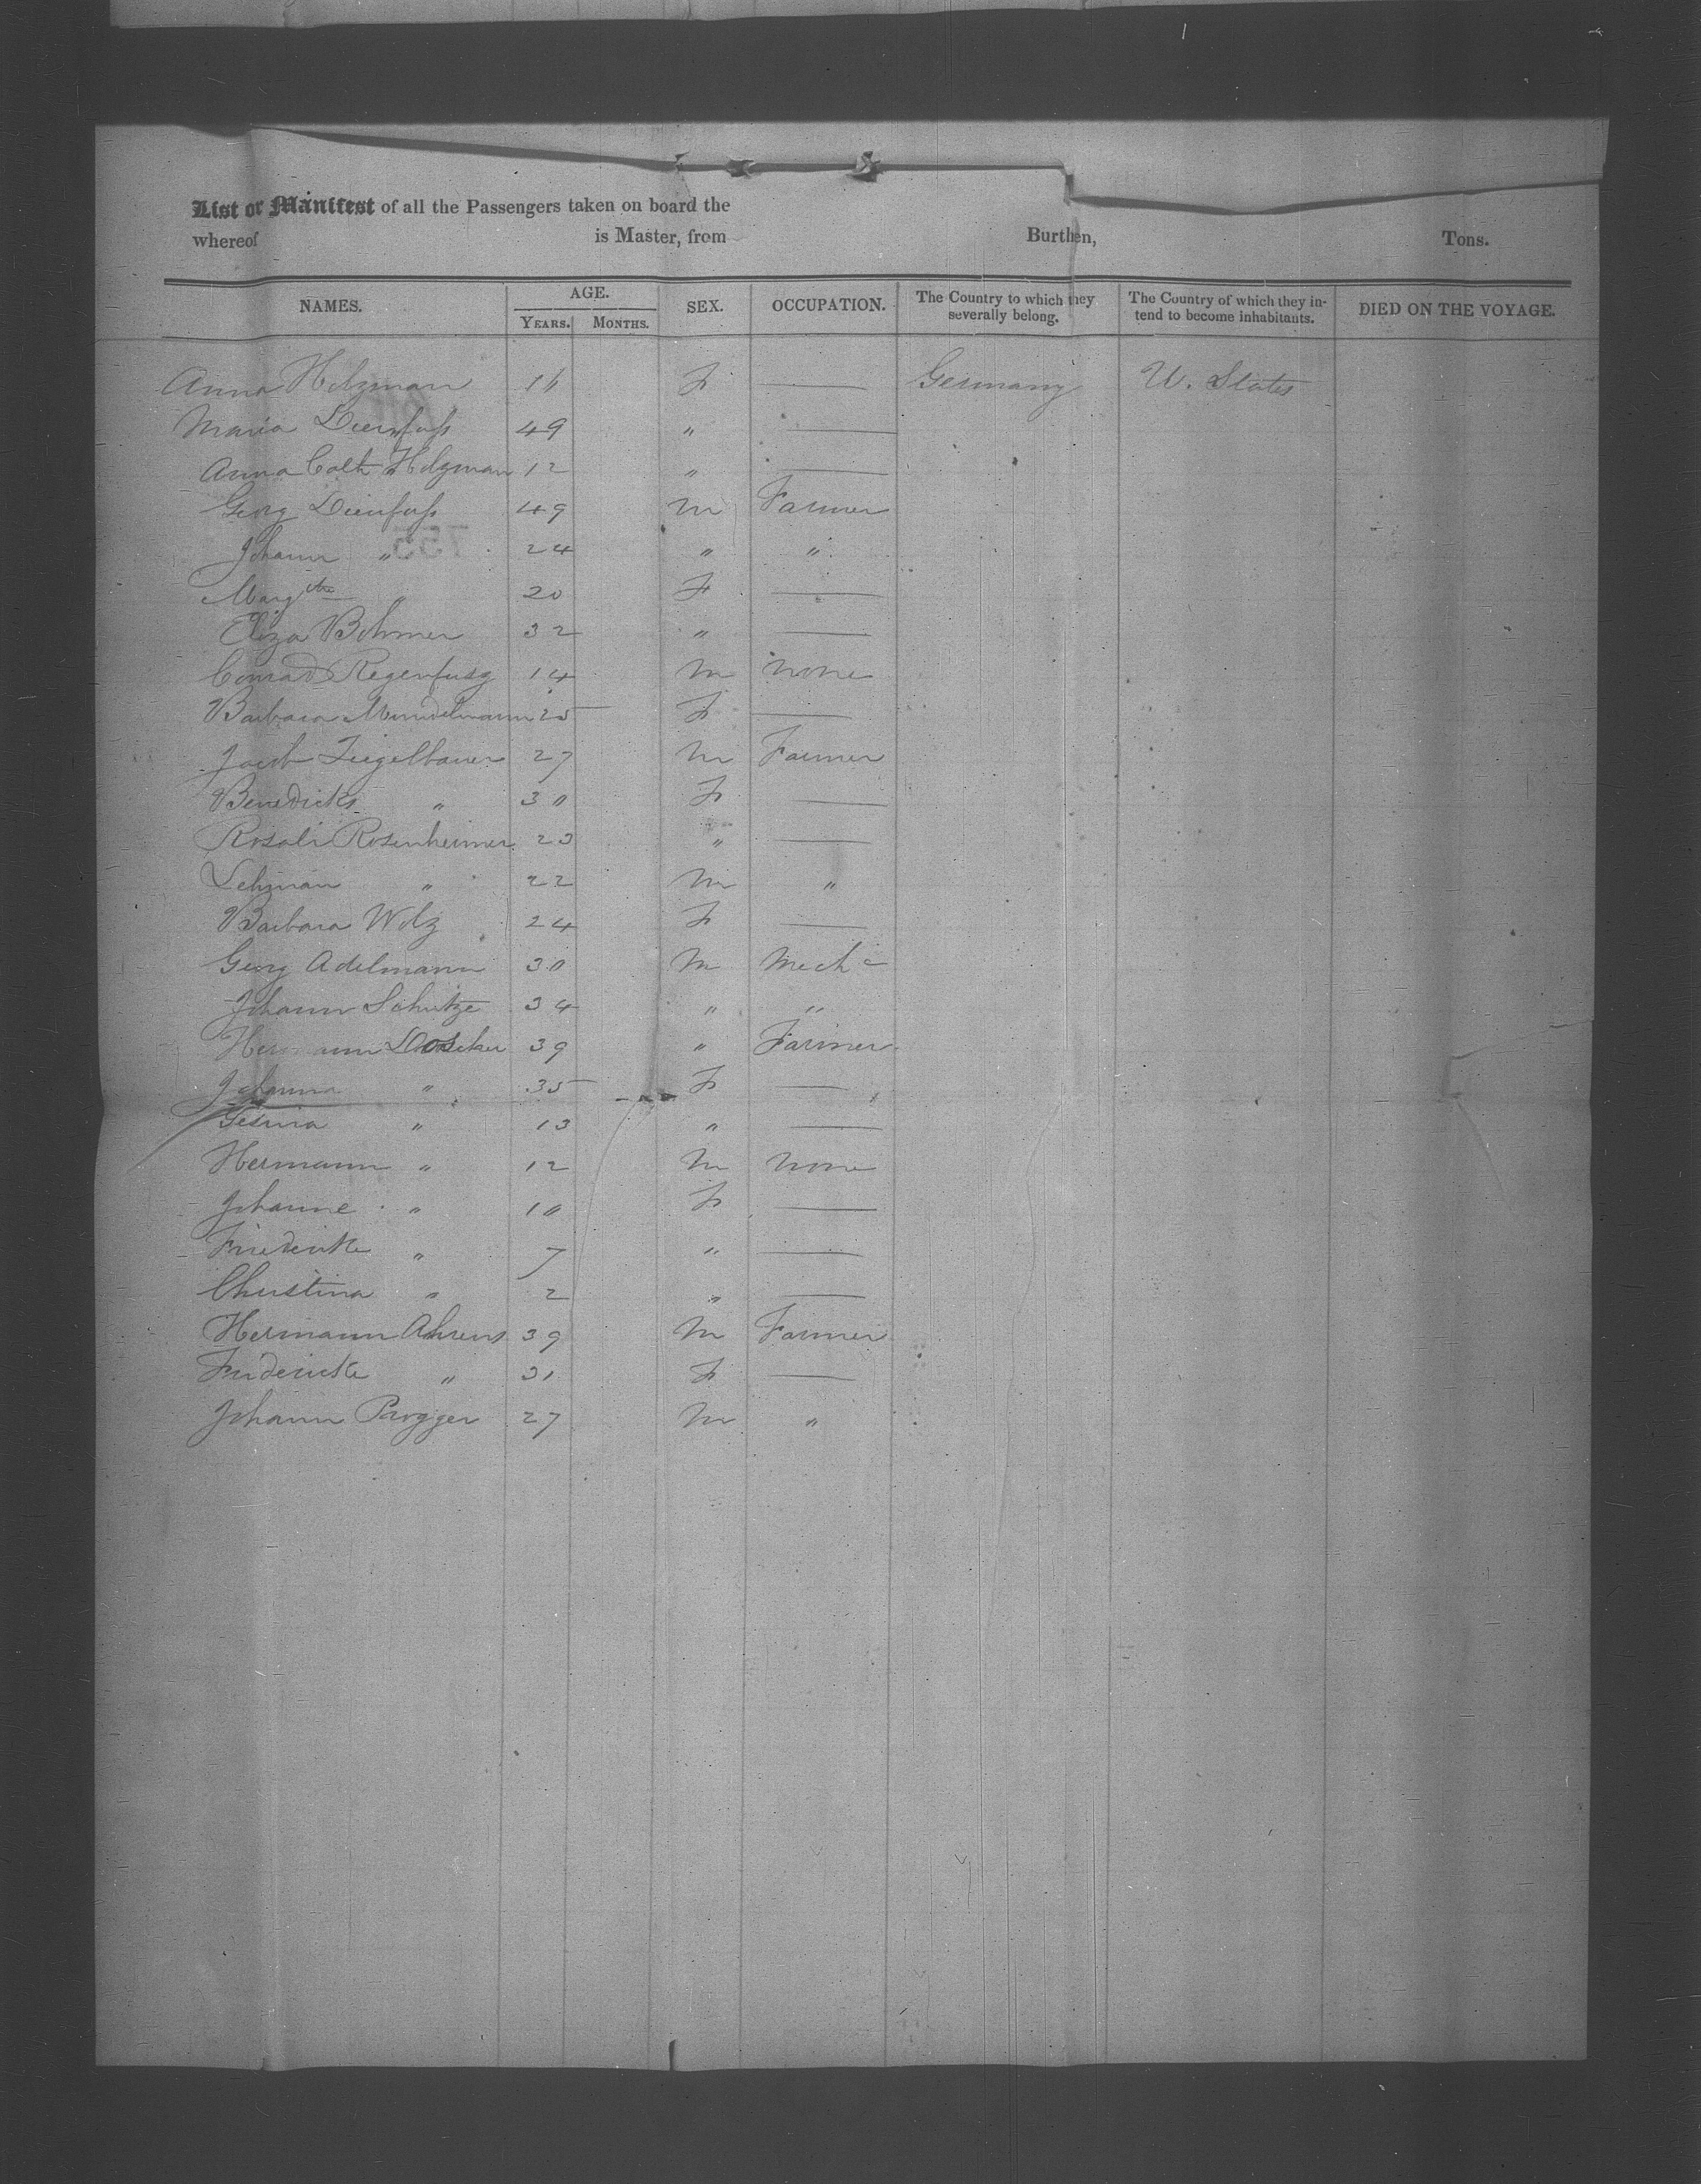 List or Manifest of all the Passengers taken on board the
whereof is Master, from Burthen, Tons.
NAMES. AGE. SEX. OCCUPATION. The Country to which they severally belong. The Country of which they intend to become inhabitants. DIED ON THE VOYAGE.
YEARS. MONTHS.
Anna Holzman F — Germany U. States
Maria 49 " —
Anna Cath Holzman 12 " —
Georg 49 M Farmer
Johann " 24 " "
Marg 20 F —
Eliza Bohmer 32 " —
Conrad Regenfusz 14 M none
Barbara 25 F —
Jacob Ziegelbauer 27 M Farmer
Benedicks " 30 F —
Rosali Rosenheimer 23 " —
Lehman " 22 M "
Barbara Wolz 24 F —
Georg Adelmann 30 M Mechc
Johann Schutze 34 " "
Hermann 39 " Farmer
Johanna " 35 F —
Gesina " 13 " —
Hermann " 12 M none
Johanne " 10 F —
Friedericke " 7 " —
Christina " 2 " —
Hermann Ahrens 39 M Farmer
Fridericke " 31 F —
Johann 27 M "